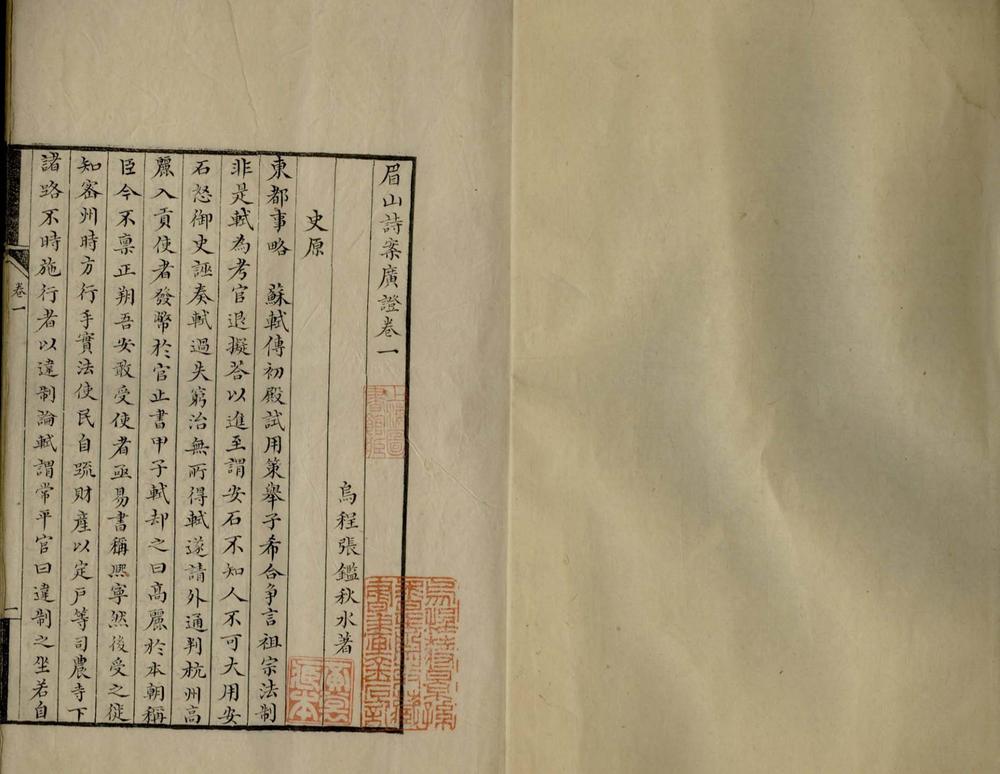 眉山詩案廣證卷一
烏程張鑑秋水著
史原
東都事略 蘇軾傳初殿試用策舉子希合争言祖宗法制
非是軾為考官退擬荅以進至謂安石不知人不可大用安
石怒御史誣奏軾過失窮治無所得軾遂請外通判杭州高
麗入貢使者發幣於官止書甲子軾却之曰高麗於本朝稱
臣今不禀正朔吾安敢受使者亟易書稱熙寧然後受之徙
知密州時方行手實法使民自疏財產以定戶等司農寺下
諸路不時施行者以違制論軾謂常平官曰違制之坐若自
卷一
一
上海圖
書館藏